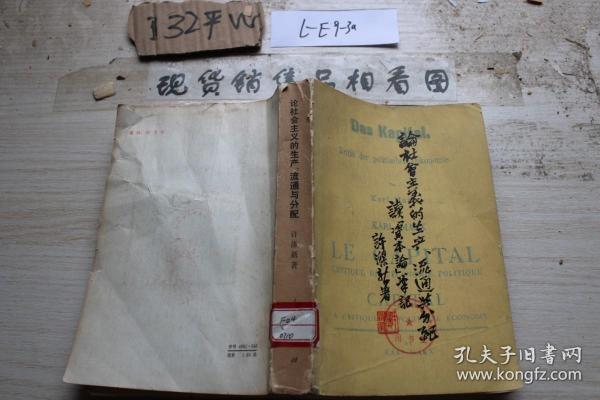 132平W
L-E9-3a
现货销售品相看图
论社会主义的生产、流通与分配
许涤新著
Das Kapital.
Kritik der politischen Oekonomie.
論社會主義的生产 流通与分配
讀《資本論》筆記
許滌新著
KARL MARX
LE CAPITAL
CRITIQUE DE L'ÉCONOMIE POLITIQUE
CAPITAL
A CRITIQUE OF POLITICAL ECONOMY
KARL MARX
孔夫子旧书网
www.kongfz.com